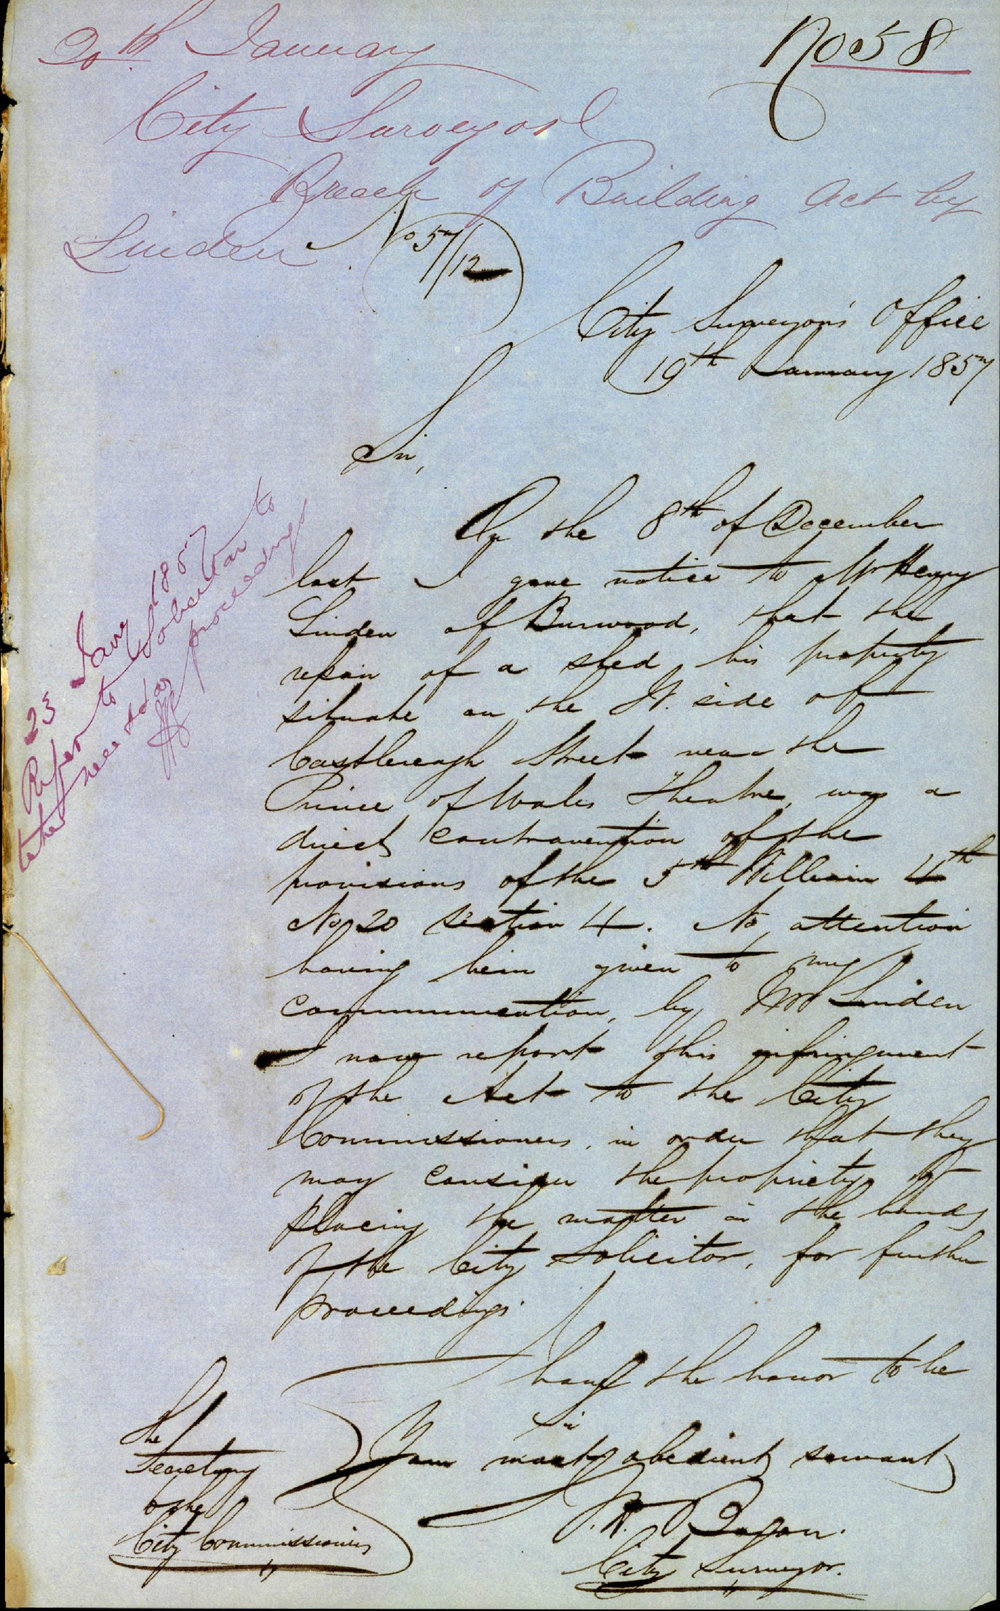 No 58
20th January
City Surveyor
Breach of Building Act by
Linden
No 57/12
City Surveyor's Office
19th January 1857
Sir,
On the 8th of December
last I gave notice to Mr Henry
Linden of Burwood, that the
repair of a shed, his property
situate on the St. side of
Castlereagh Street near the
Prince of Wales Theatre, was a
direct contravention of the
provisions of the 5th William 4th
No 20 section 4. No attention
having been given to my
communication, by Mr Linden
I now report this infringment
of the Act to the City
Commissioners, in order that they
may consider the propriety of
placing the matter in the hands
of the City Solicitor, for further
proceedings.
I have the honor to be
Sir
Your most obedient servant
City Surveyor.
The
Secretary
to the
City Commissioners
23 Jany 1857
Refer to Solicitor to
take necessary proceedings